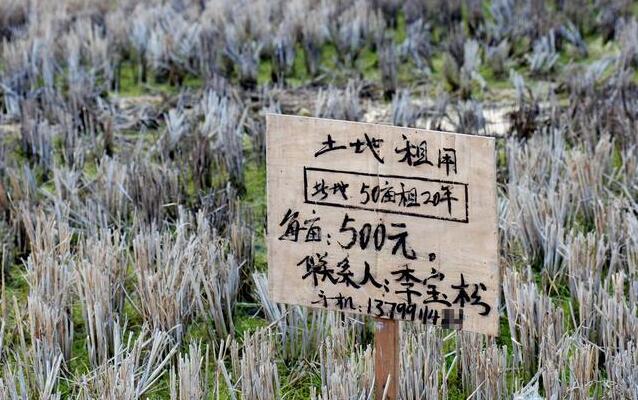 土地租用
此地50亩租20年
每亩:500元。
联系人:李宝松
手机:13799114